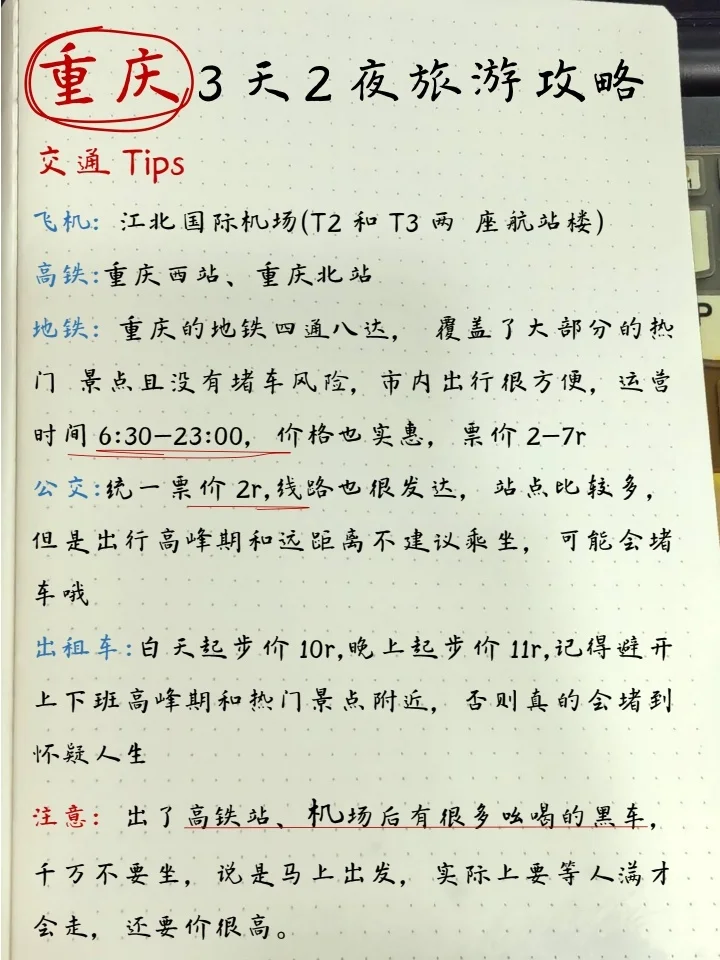 重庆3天2夜旅游攻略
交通 Tips
飞机: 江北国际机场(T2 和 T3 两 座航站楼)
高铁:重庆西站、重庆北站
地铁: 重庆的地铁四通八达, 覆盖了大部分的热
门 景点且没有堵车风险, 市内出行很方便, 运营
时间 6:30—23:00, 价格也实惠, 票价 2—7r
公交:统一票价 2r,线路也很发达, 站点比较多,
但是出行高峰期和远距离不建议乘坐, 可能会堵
车哦
出租车:白天起步价 10r,晚上起步价 11r,记得避开
上下班高峰期和热门景点附近, 否则真的会堵到
怀疑人生
注意: 出了高铁站、机场后有很多吆喝的黑车,
千万不要坐, 说是马上出发, 实际上要等人满才
会走, 还要价很高。
P
1